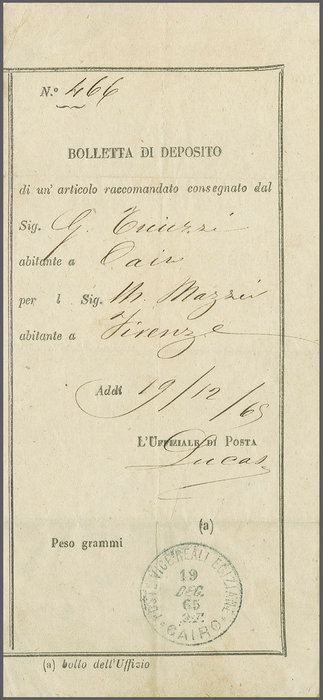 N.º 466
BOLLETTA DI DEPOSITO
di un' articolo raccomandato consegnato dal
Sig. G.
abitante a Cair
per l Sig. M. Mazzei
abitante a Firenze
Addi 19/12/65
L'UFFIZIALE DI POSTA
Lucas
(a)
Peso grammi
POSTE VICE REALI EGIZIANE
19
DEC.
65
CAIRO
(a) bollo dell'Uffizio